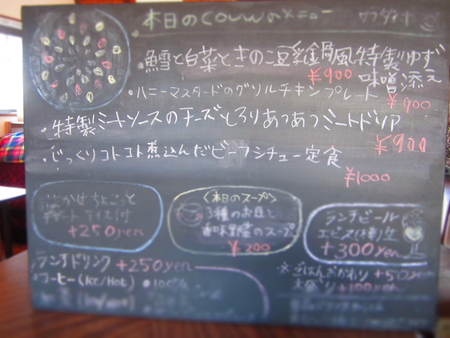 本日のcowwのメニュー
・鱈と白菜ときのこ豆乳鍋風特製ゆず味噌添え
¥900
・ハニーマスタードのグリルチキンプレート
¥900
・特製ミートソースのチーズとろりあつあつミートドリア
¥900
・じっくりコトコト煮込んだビーフシチュー定食
¥1000
+250yen
<本日のスープ>
3種のお豆と
香味野菜のスープ
¥200
ランチビール
エビス
+300yen
ランチドリンク +250yen
・コーヒー(Ice/Hot)
※ごはんおかわり +50yen
大盛り +100yen